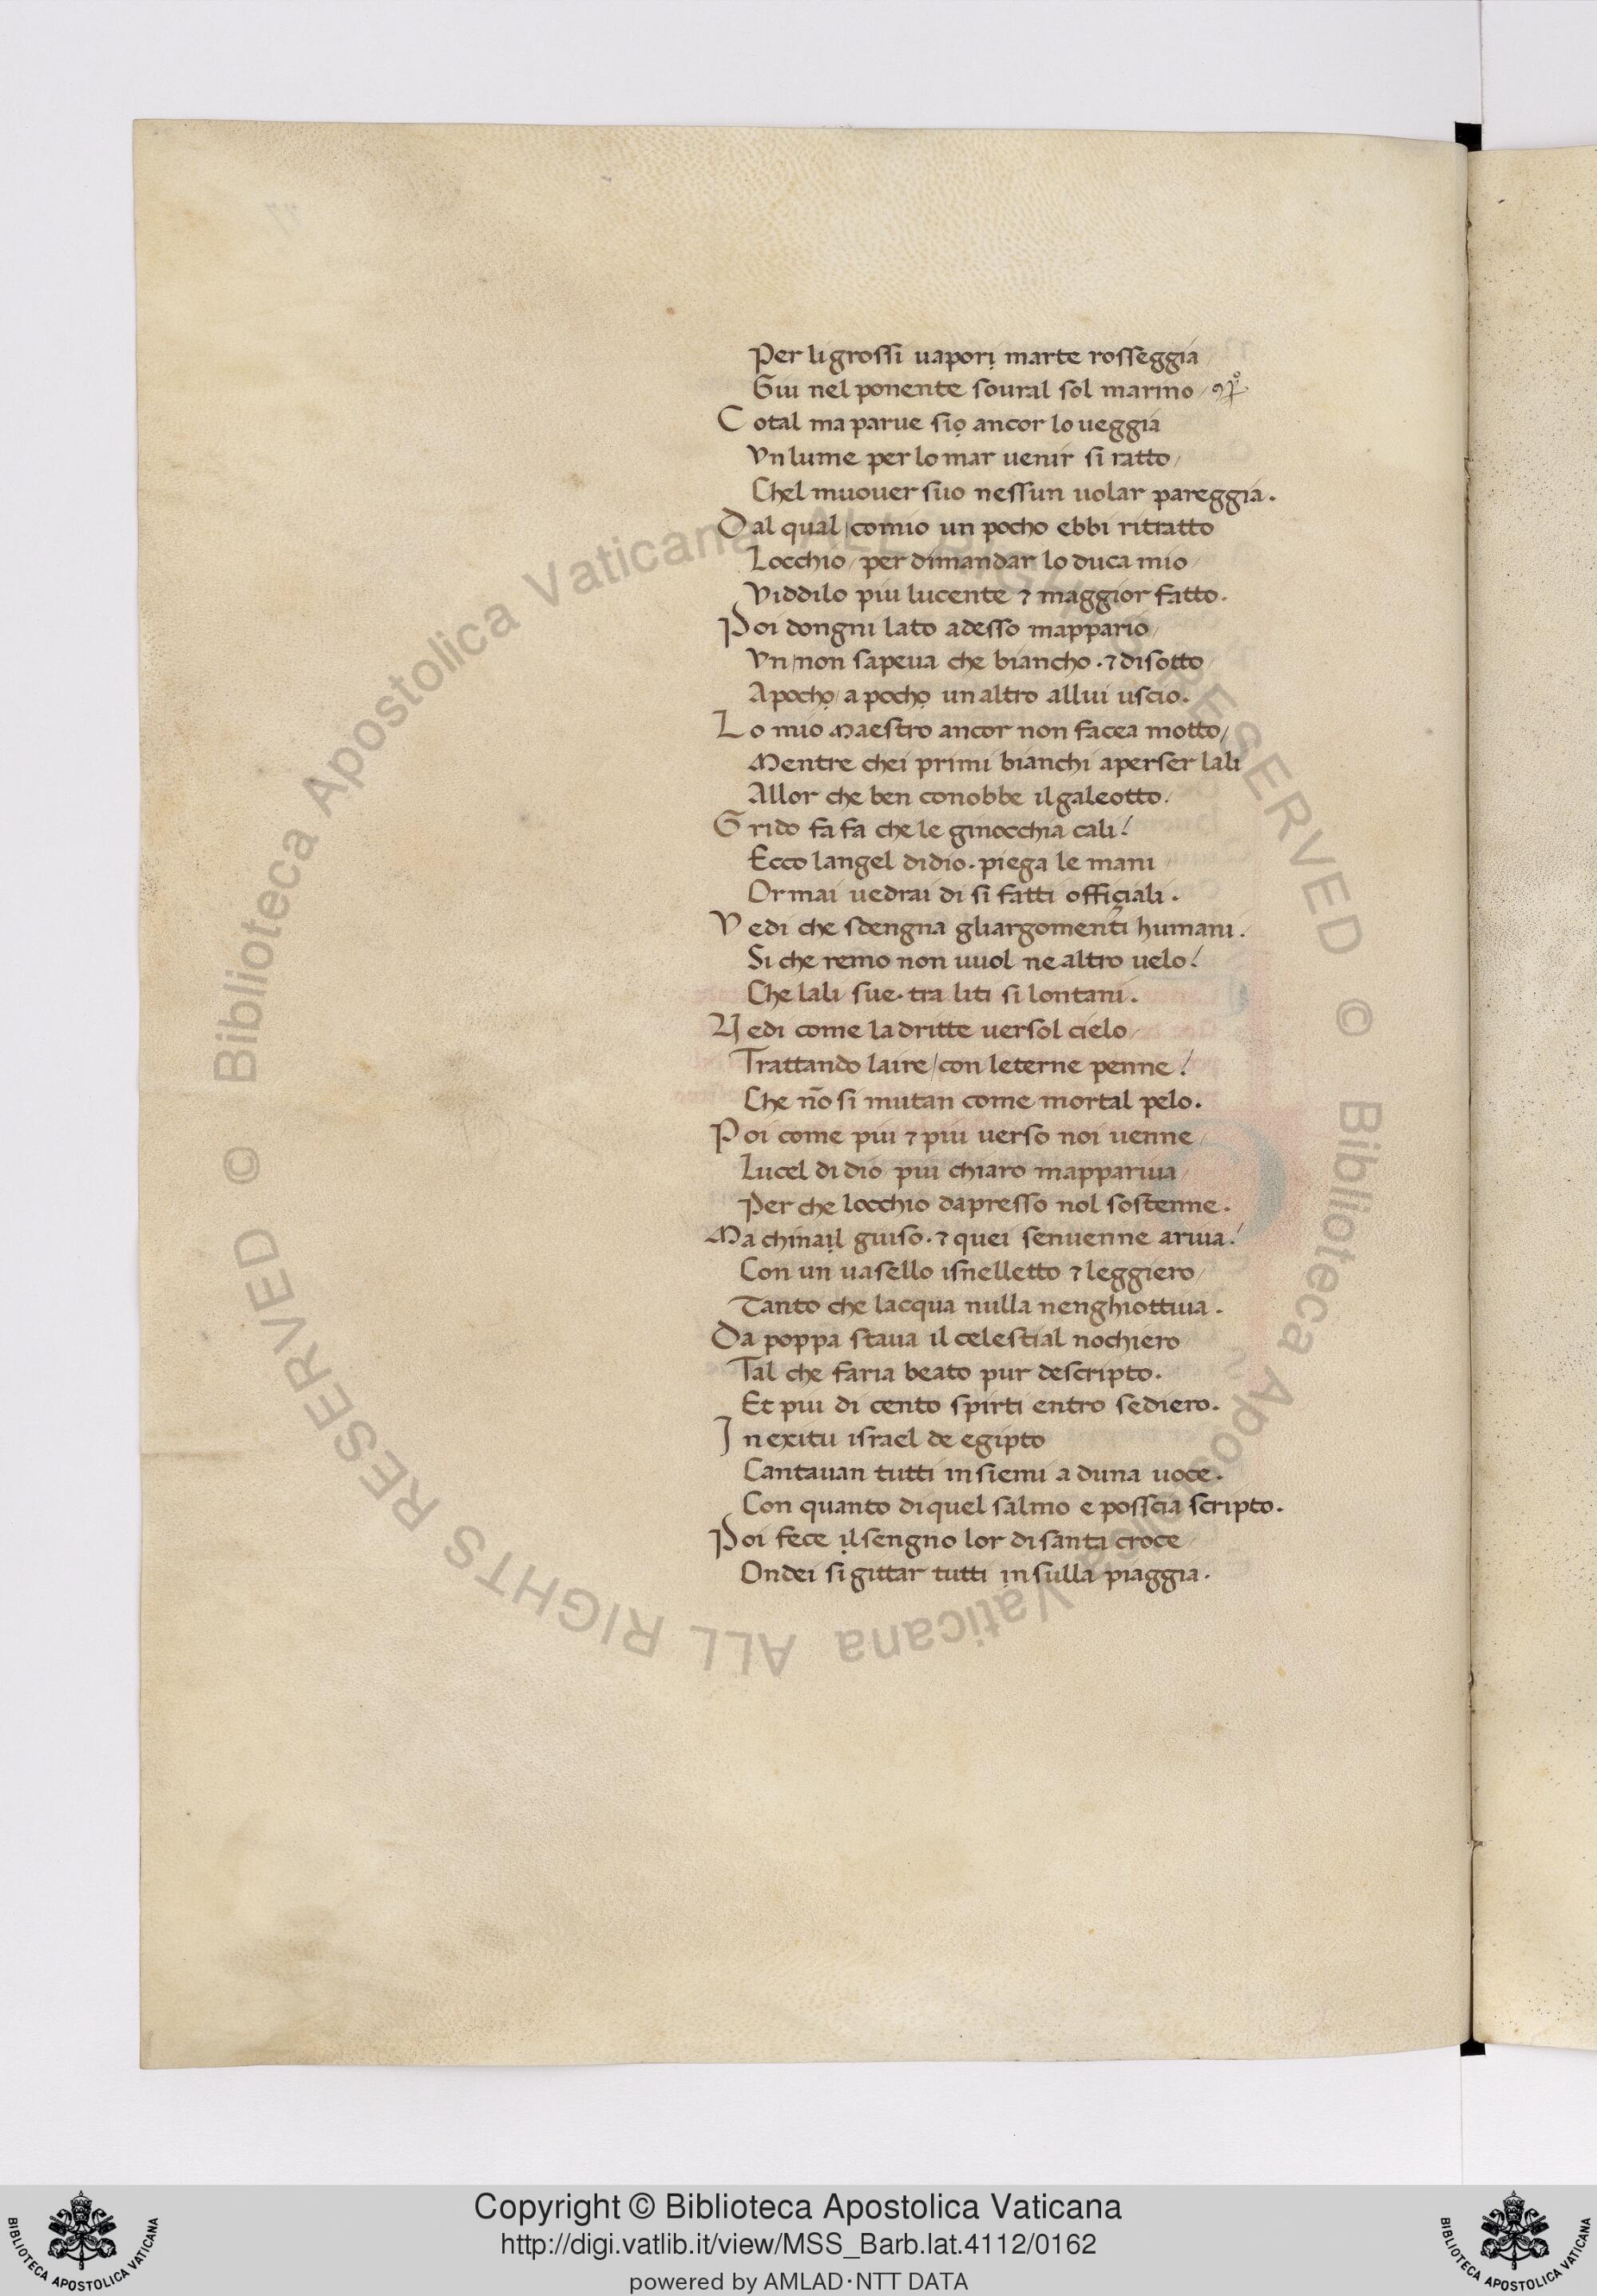 Per li grossi uapori marte rosseggia
Giu nel ponente soural sol marino /
C otal ma parue sio ancor lo ueggia
Vn lume per lo mar uenir si ratto /
Chel muouer suo nessun uolar pareggia .
D al qual / comio un pocho ebbi ritratto
Locchio / per dimandar lo duca mio /
Viddilo piu lucente ⁊ maggior fatto .
P oi dongni lato adesso mappario /
Vn / non sapeua che biancho . ⁊ disotto /
A pocho / a pocho un altro allui uscio .
L o mio maestro ancor non facea motto /
Mentre chei primi bianchi aperser lali
Allor che ben conobbe il galeotto .
G rido fa fa che le ginocchia cali !
Ecco langel di dio . piega le mani /
Ormai uedrai di si fatti officiali .
V edi che sdengna gliargomenti humani .
Si che remo non uuol ne altro uelo !
Che lali sue . tra liti si lontani .
V edi come la dritte uersol cielo /
Trattando laire / con leterne penne !
Che nō si mutan come mortal pelo .
P oi come piu ⁊ piu uerso noi uenne /
Lucel di dio piu chiaro mappariua /
Per che locchio dapresso nol sostenne .
Ma chinail guiso . ⁊ quei senuenne ariua !
Con un uasello isnelletto ⁊ leggiero /
Tanto che lacqua nulla nenghiottiua .
Da poppa staua il celestial nochiero /
Tal che faria beato pur descripto .
Et piu di cento spirti entro sediero .
I n exitu israel de egipto
Cantauan tutti insiemi a duna uoce .
Con quanto di quel salmo e posscia scripto .
P oi fece il sengno lor di santa croce /
Ondei si gittar tutti in sulla piaggia .
© Biblioteca Apostolica Vaticana ALL RIGHTS RESERVED
© Biblioteca Apostolica Vaticana ALL RIGHTS RESERVED
Copyright © Biblioteca Apostolica Vaticana
http://digi.vatlib.it/view/MSS_Barb.lat.4112/0162
powered by AMLAD·NTT DATA
BIBLIOTECA APOSTOLICA VATICANA
BIBLIOTECA APOSTOLICA VATICANA